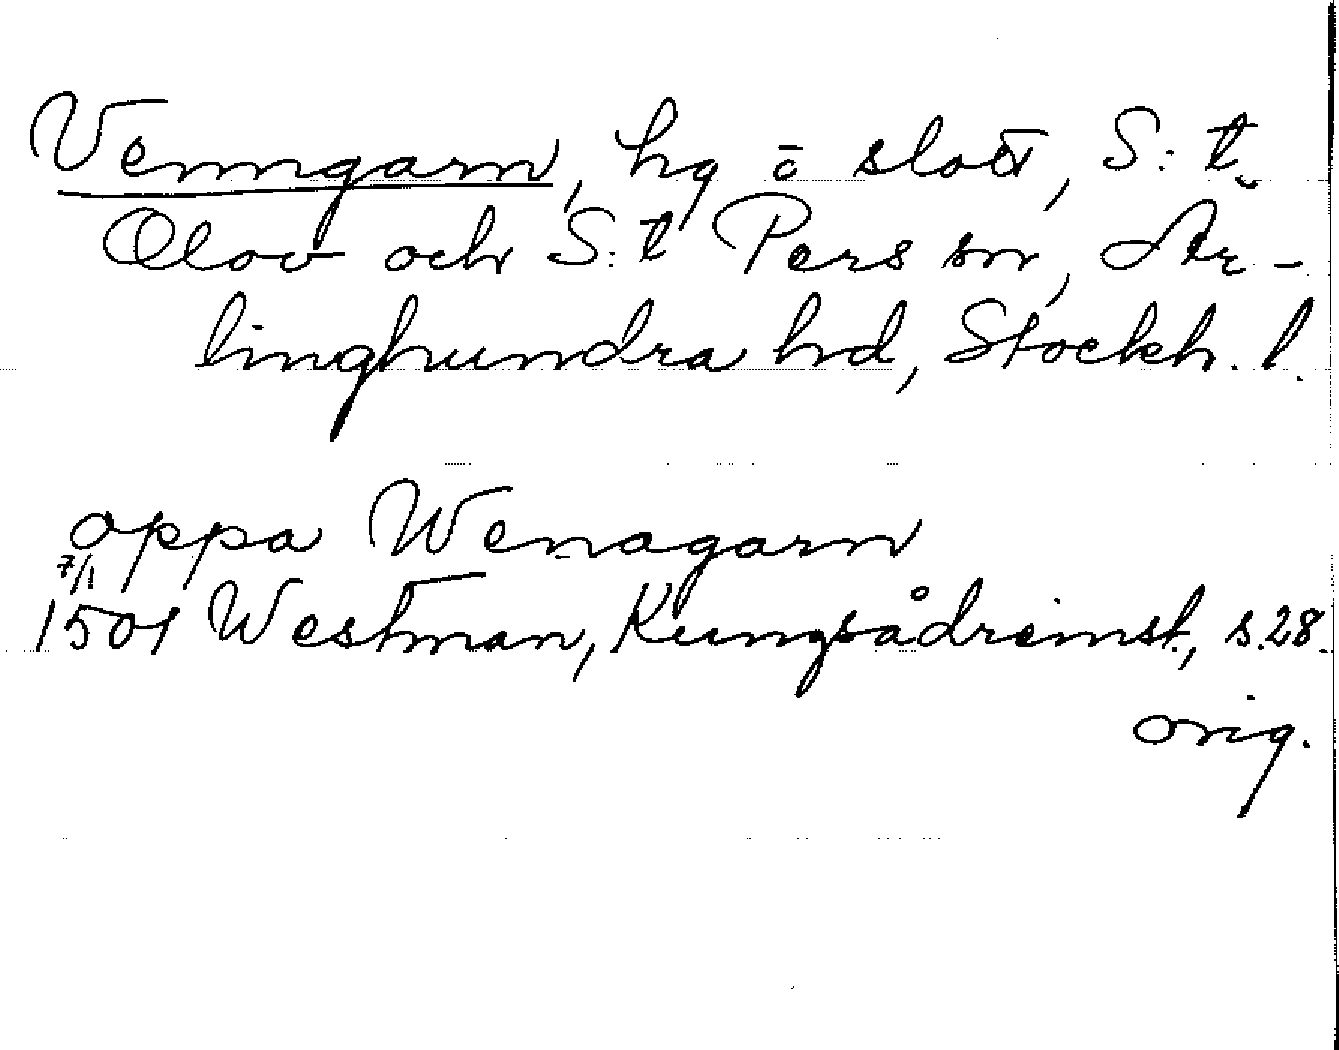 Venngarn, hg o slott, S:t
Olov och S:t Pers snr, Är-
linghundra hd, Stockh. l.
oppa Wenagarn
7/1
1501 Westman, Kungsådreinst, s.28.
orig.